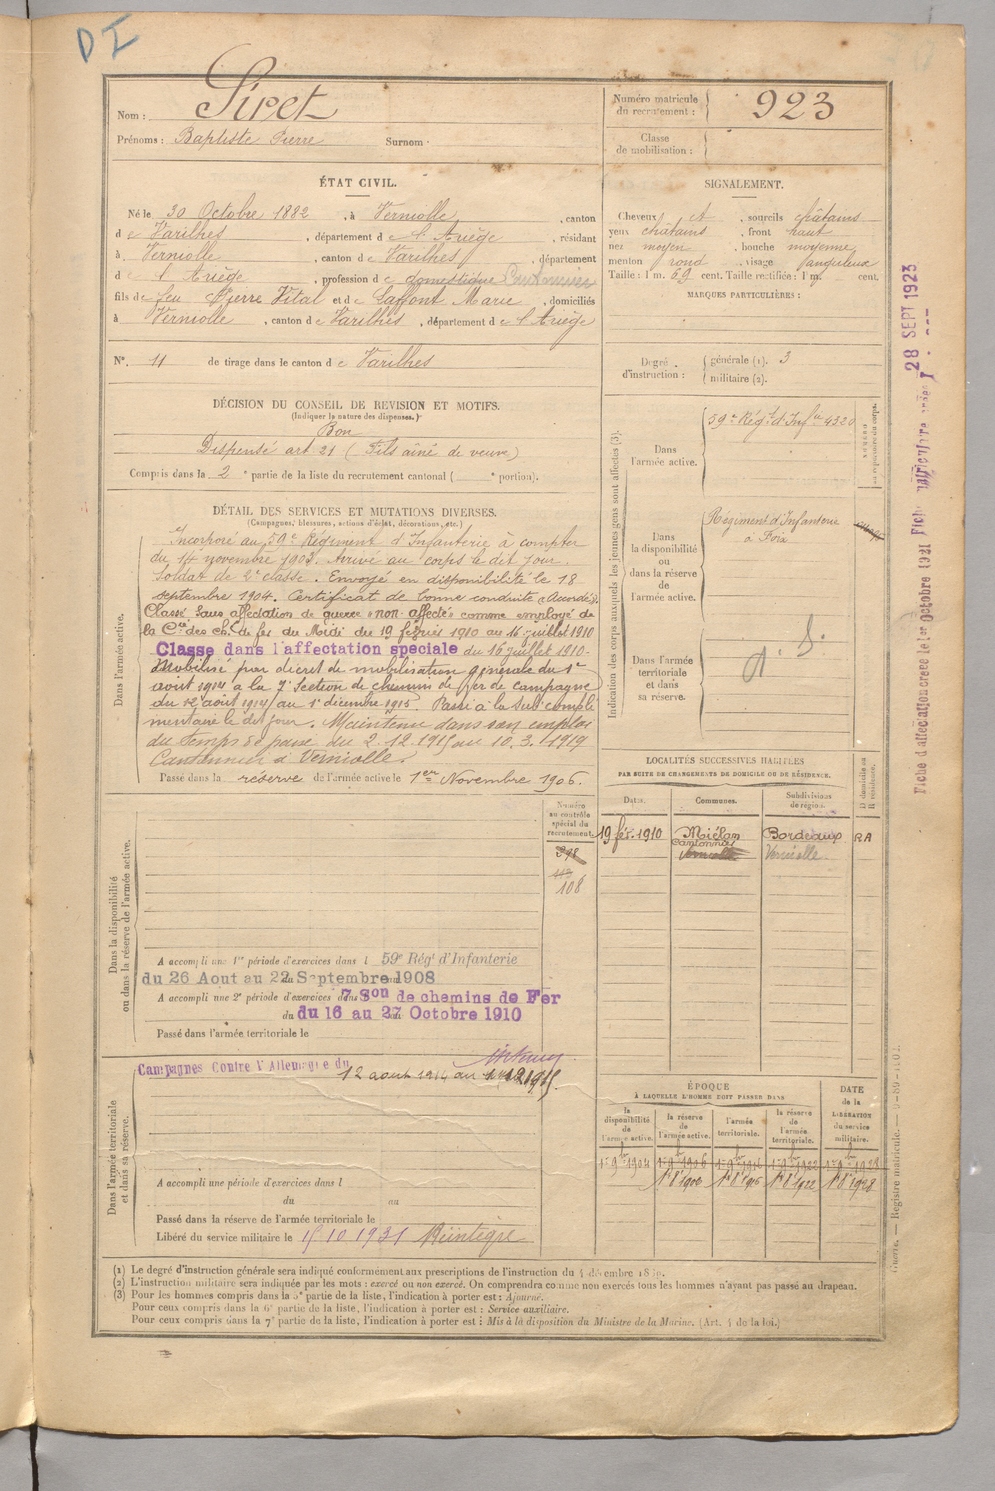 DI
Nom : Siret
Prénoms : Baptiste Pierre Surnom :
Numéro matricule du recrutement : 923
Classe de mobilisation :
ÉTAT CIVIL.
Né le 30 Octobre 1882, à Verniolle, canton
de Varilhes, département de l'Ariège, résidant
à Verniolle, canton de Varilhes, département
de l'Ariège, profession de domestique Cantonnier
fils de feu Pierre Vital et de Laffont Marie, domiciliés
à Verniolle, canton de Varilhes, département de l'Ariège
N° 11 de tirage dans le canton de Varilhes
SIGNALEMENT.
Cheveux et, sourcils châtains
yeux châtains, front haut
nez moyen, bouche moyenne
menton rond, visage sanguieux
Taille : 1 m. 69 cent. Taille rectifiée : 1 m. cent.
MARQUES PARTICULIÈRES :
Degré d'instruction : générale (1). 3
militaire (2).
DÉCISION DU CONSEIL DE REVISION ET MOTIFS.
(Indiquer la nature des dispenses.)
Bon
Dispensé art 21 (Fils aîné de veuve)
Compris dans la 2e partie de la liste du recrutement cantonal ( e portion).
DÉTAIL DES SERVICES ET MUTATIONS DIVERSES.
(Campagnes, blessures, actions d'éclat, décorations, etc.)
Dans l'armée active.
Incorporé au 59e Régiment d'Infanterie à compter
du 14 novembre 1903. Arrivé au corps le dit jour.
Soldat de 2e classe. Envoyé en disponibilité le 18
septembre 1904. Certificat de bonne conduite "Accordé".
Classé sans affectation de guerre "non-affecté" comme employé de
la Cie des ch. de fer du Midi du 19 février 1910 au 16 juillet 1910
Classe dans l'affectation speciale du 16 juillet 1910-
Mobilisé par décret de mobilisation générale du 1er
août 1914 à la 7e Section de chemins de fer de campagne
du 12 août 1914 au 1er décembre 1915. Passé à la Sub. complé
mentaire le dit jour. Maintenu dans son emploi
du temps de paix du 2.12.1915 au 10.3.1919
Cantonnier à Verniolle.
Passé dans la réserve de l'armée active le 1er Novembre 1906.
Indication des corps auxquels les jeunes gens sont affectés (3).
Dans l'armée active.
59e Régt d'Infie 4320
Dans la disponibilité ou dans la réserve de l'armée active.
Régiment d'Infanterie
à Foix
Dans l'armée territoriale et dans sa réserve.
LOCALITÉS SUCCESSIVES HABITÉES
PAR SUITE DE CHANGEMENTS DE DOMICILE OU DE RÉSIDENCE.
Dates. Communes. Subdivisions de région. D domicile ou R résidence.
19 fév. 1910 Miélan Bordeaux RA
Cantonnier
Verniolle Verniolle
Dans la disponibilité ou dans la réserve de l'armée active.
Numéro au contrôle spécial du recrutement.
108
A accompli une 1re période d'exercices dans l 59e Régt d'Infanterie
du 26 Aout au 22 Septembre 1908
A accompli une 2e période d'exercices dans 7 Son de chemins de Fer
du 16 au 27 Octobre 1910
Passé dans l'armée territoriale le
Dans l'armée territoriale et dans sa réserve.
Campagnes Contre l'Allemagne du
12 aout 1914 au 1.12.1915
A accompli une période d'exercices dans l
du au
Passé dans la réserve de l'armée territoriale le
Libéré du service militaire le 15 10 1931 Réintégré
ÉPOQUE
À LAQUELLE L'HOMME DOIT PASSER DANS
la disponibilité de l'armée active. la réserve de l'armée active. l'armée territoriale. la réserve de l'armée territoriale. DATE de la LIBÉRATION du service militaire.
1er 9bre 1904 1er 9bre 1906 1er 9bre 1916 1er 9bre 1922 1er 9bre 1928
(1) Le degré d'instruction générale sera indiqué conformément aux prescriptions de l'instruction du 4 décembre 1889.
(2) L'instruction militaire sera indiquée par les mots : exercé ou non exercé. On comprendra comme non exercés tous les hommes n'ayant pas passé au drapeau.
(3) Pour les hommes compris dans la 5e partie de la liste, l'indication à porter est : Ajourné.
Pour ceux compris dans la 6e partie de la liste, l'indication à porter est : Service auxiliaire.
Pour ceux compris dans la 7e partie de la liste, l'indication à porter est : Mis à la disposition du Ministre de la Marine. (Art. 4 de la loi.)
28 SEPT 1923
Fiche d'affectation créée le 1er Octobre 1921 Fiche matriculaire créée
Registre matricule.